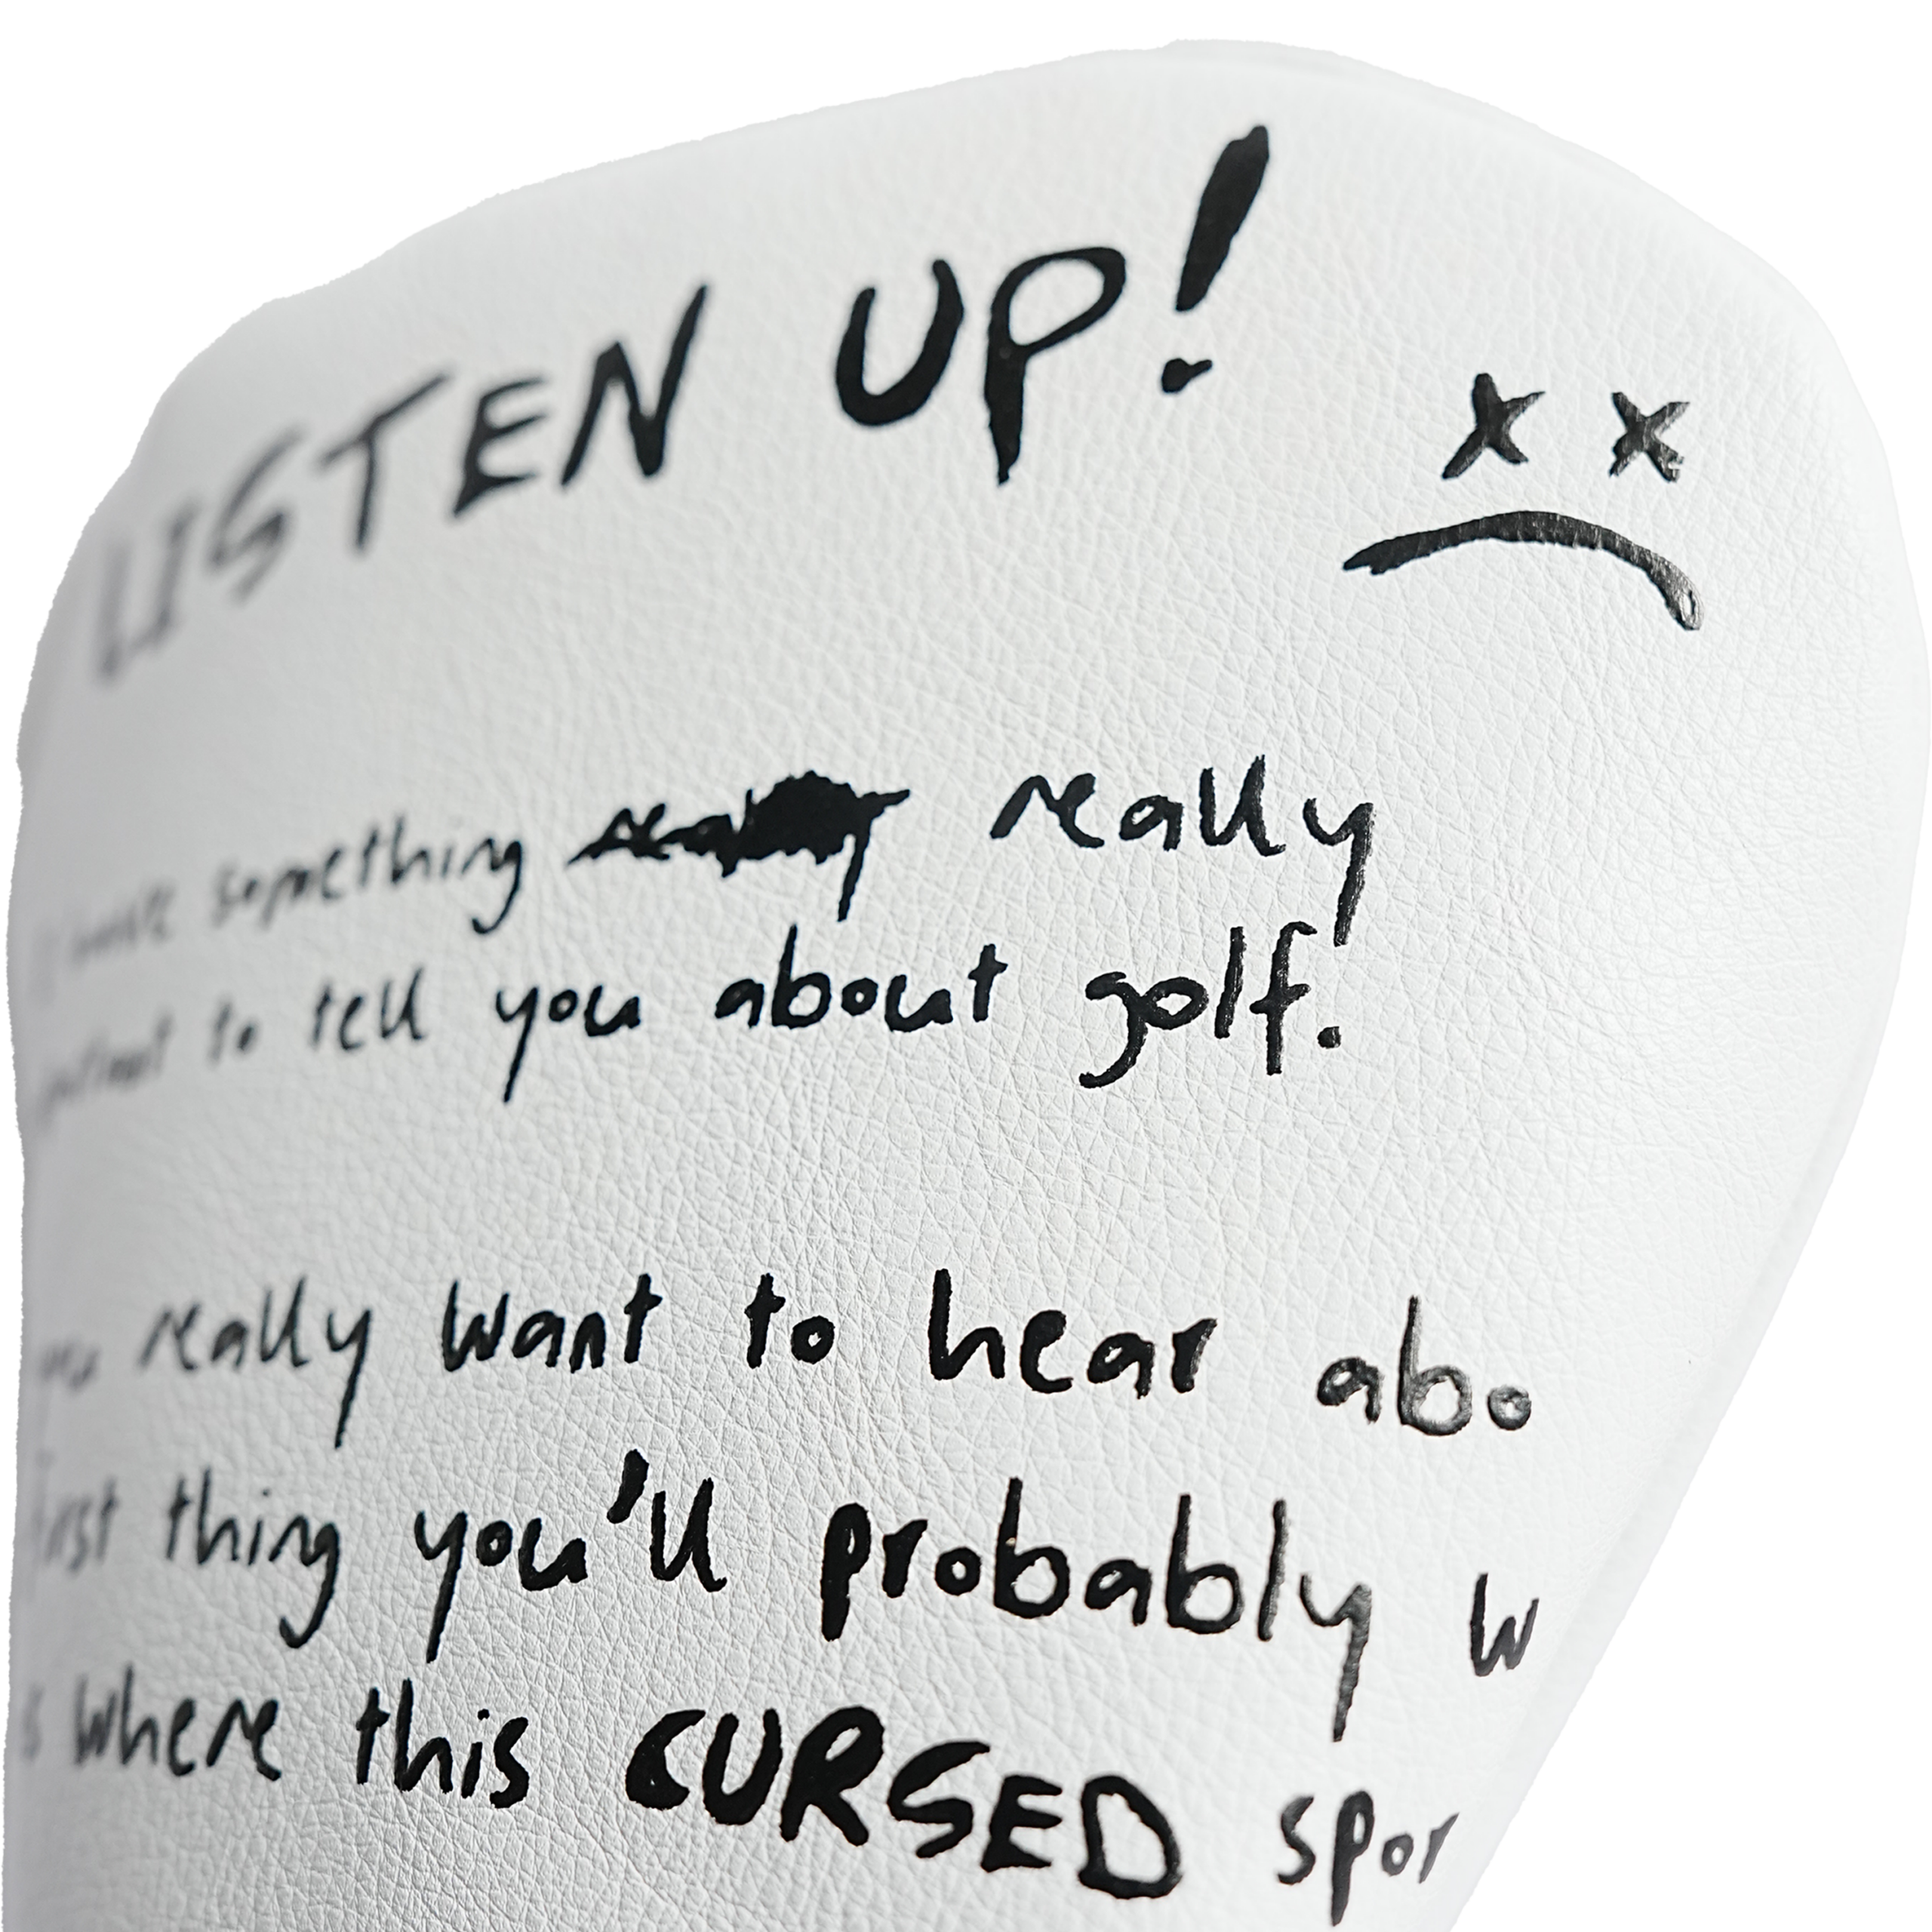 LISTEN UP!
something really
to tell you about golf.
really want to hear abo
first thing you'll probably w
s where this CURSED spor